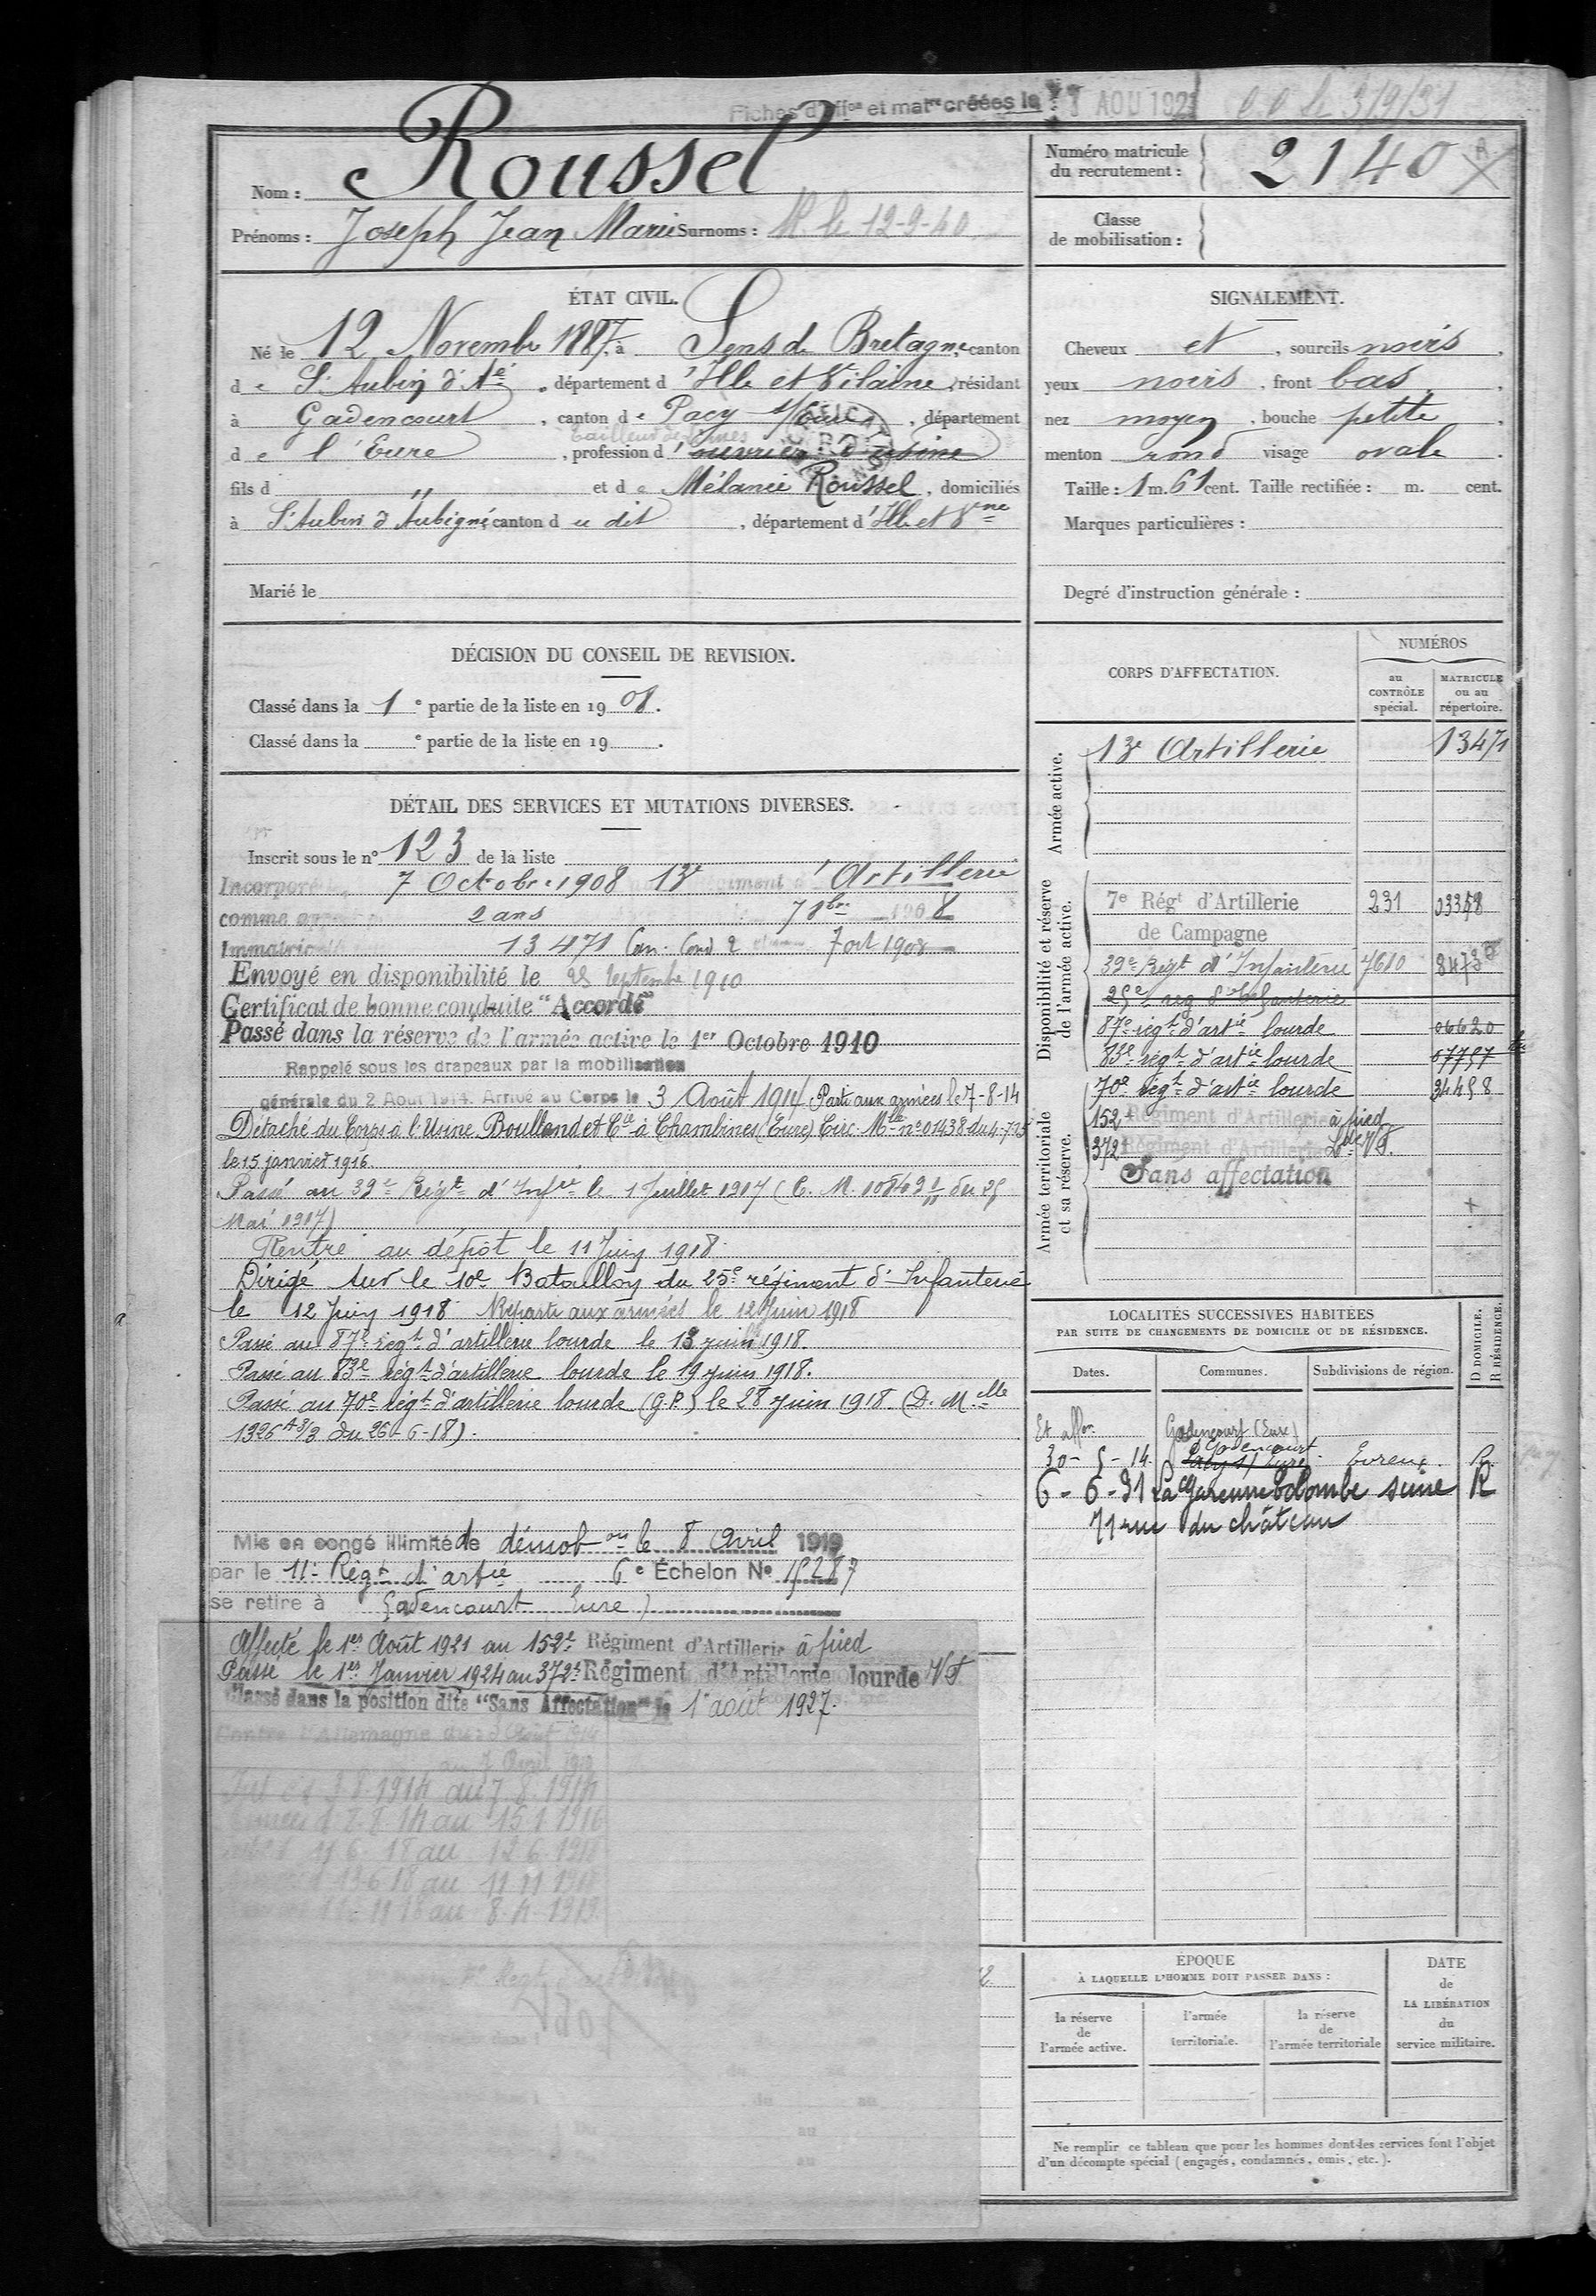 Fiches d' et matre créées le AOU 192
C.C le 3/9/31
Nom : Roussel
Prénoms : Joseph Jean Marie Surnoms : M le 12-9-40
Numéro matricule du recrutement : 2140
Classe de mobilisation :
ÉTAT CIVIL.
Né le 12 Novembre 1887, à Sens de Bretagne, canton
de St Aubin d'Aé, département d'Ille et Vilaine, résidant
à Gadencourt, canton de Pacy s/ Eure, département
de l'Eure, profession d'ouvrier d'usine
tailleur de limes
fils d " et de Mélanie Roussel, domiciliés
à St Aubin d'Aubigné canton du dit, département d'Ille et Vne
Marié le
SIGNALEMENT.
Cheveux et, sourcils noirs,
yeux noirs, front bas,
nez moyen, bouche petite,
menton rond visage ovale.
Taille : 1 m. 61 cent. Taille rectifiée : m. cent.
Marques particulières :
Degré d'instruction générale :
DÉCISION DU CONSEIL DE REVISION.
Classé dans la 1e partie de la liste en 1908.
Classé dans la e partie de la liste en 19 .
DÉTAIL DES SERVICES ET MUTATIONS DIVERSES.
Inscrit sous le n° 123 de la liste
Incorporé 7 Octobre 1908 13e Artillerie
comme 2 ans 7 8bre 1908
13471 Can. Cond 2 7 oct 1908
Envoyé en disponibilité le 25 septembre 1910
Certificat de bonne conduite "Accordé"
Passé dans la réserve de l'armée active le 1er Octobre 1910
Rappelé sous les drapeaux par la mobilisation
générale du 2 Aout 1914. Arrivé au Corps le 3 Août 1914 Parti aux armées le 7-8-14
Détaché du Corps à l'Usine Boulland et Cie à Chambines (Eure) Circ. Mlle n° 01438 du 4-7-15
le 15 janvier 1916.
Passé au 39e Régt d'Infie le 1 Juillet 1917 (C. M. 10849 1/11 du 25
Mai 1917)
Rentré au dépôt le 11 Juin 1918
Dirigé sur le 10e Bataillon du 25e régiment d'Infanterie
le 12 Juin 1918 Reparti aux armées le 12 Juin 1918
Passé au 87e régt d'artillerie lourde le 13 juin 1918.
Passé au 83e régt d'artillerie lourde le 19 juin 1918.
Passé au 70e régt d'artillerie lourde (G.P.) le 28 juin 1918. (D. Mlle
1326 A 3/3 du 26-6-18).
Mis en congé illimité de démobon le 8 Avril 1919
par le 11e Régt d'artie 6e Échelon N° 15287
se retire à Gadencourt Eure
Affecté le 1er Août 1921 au 152e Régiment d'Artillerie à pied
Passé le 1er Janvier 1924 au 372e Régiment d'Artillerie lourde VF
Classé dans la position dite "Sans Affectation" le 1er août 1927.
Contre l'Allemagne du 3 Août 1914
au 7 Avril 1919
Int du 3.8.1914 au 7.8.1914
8.8.14 au 15 1 1916
11 6 18 au 12 6 1918
13 6 18 au 11 11 1918
11 18 au 8.4.1919
CORPS D'AFFECTATION.
NUMÉROS
au CONTRÔLE spécial.
MATRICULE ou au répertoire.
Armée active.
13e Artillerie 13471
Disponibilité et réserve de l'armée active.
7e Régt d'Artillerie 231 03358
de Campagne
39e Régt d'Infanterie 7610 8473
25e reg d'Infanterie
87e régt d'artie lourde 06620
83e régt d'artie lourde 07757
Armée territoriale et sa réserve.
70e régt d'artie lourde 34458
152e Régiment d'Artillerie à pied
372e Régiment d'Artillerie Lde VF.
Sans affectation
LOCALITÉS SUCCESSIVES HABITÉES
PAR SUITE DE CHANGEMENTS DE DOMICILE OU DE RÉSIDENCE.
Dates. Communes. Subdivisions de région. D DOMICILE. R RÉSIDENCE.
Et affon. Gadencourt (Eure)
Gadencourt
30-5-14. Pacy s/ Eure Evreux. R
6-6-31 La Garenne Colombe seine R
71 rue du château
ÉPOQUE
À LAQUELLE L'HOMME DOIT PASSER DANS :
la réserve de l'armée active.
l'armée territoriale.
la réserve de l'armée territoriale
DATE de LA LIBÉRATION du service militaire.
Ne remplir ce tableau que pour les hommes dont les services font l'objet
d'un décompte spécial (engagés, condamnés, omis, etc.).